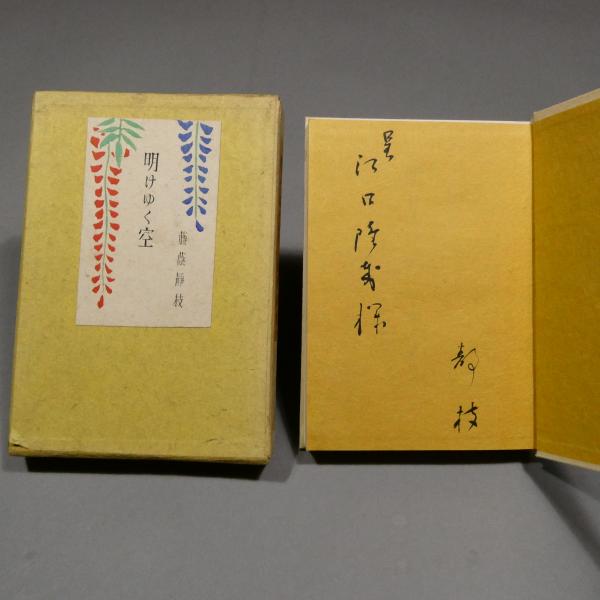 明けゆく空
藤蔭靜枝
呈
江口隆哉様
静枝